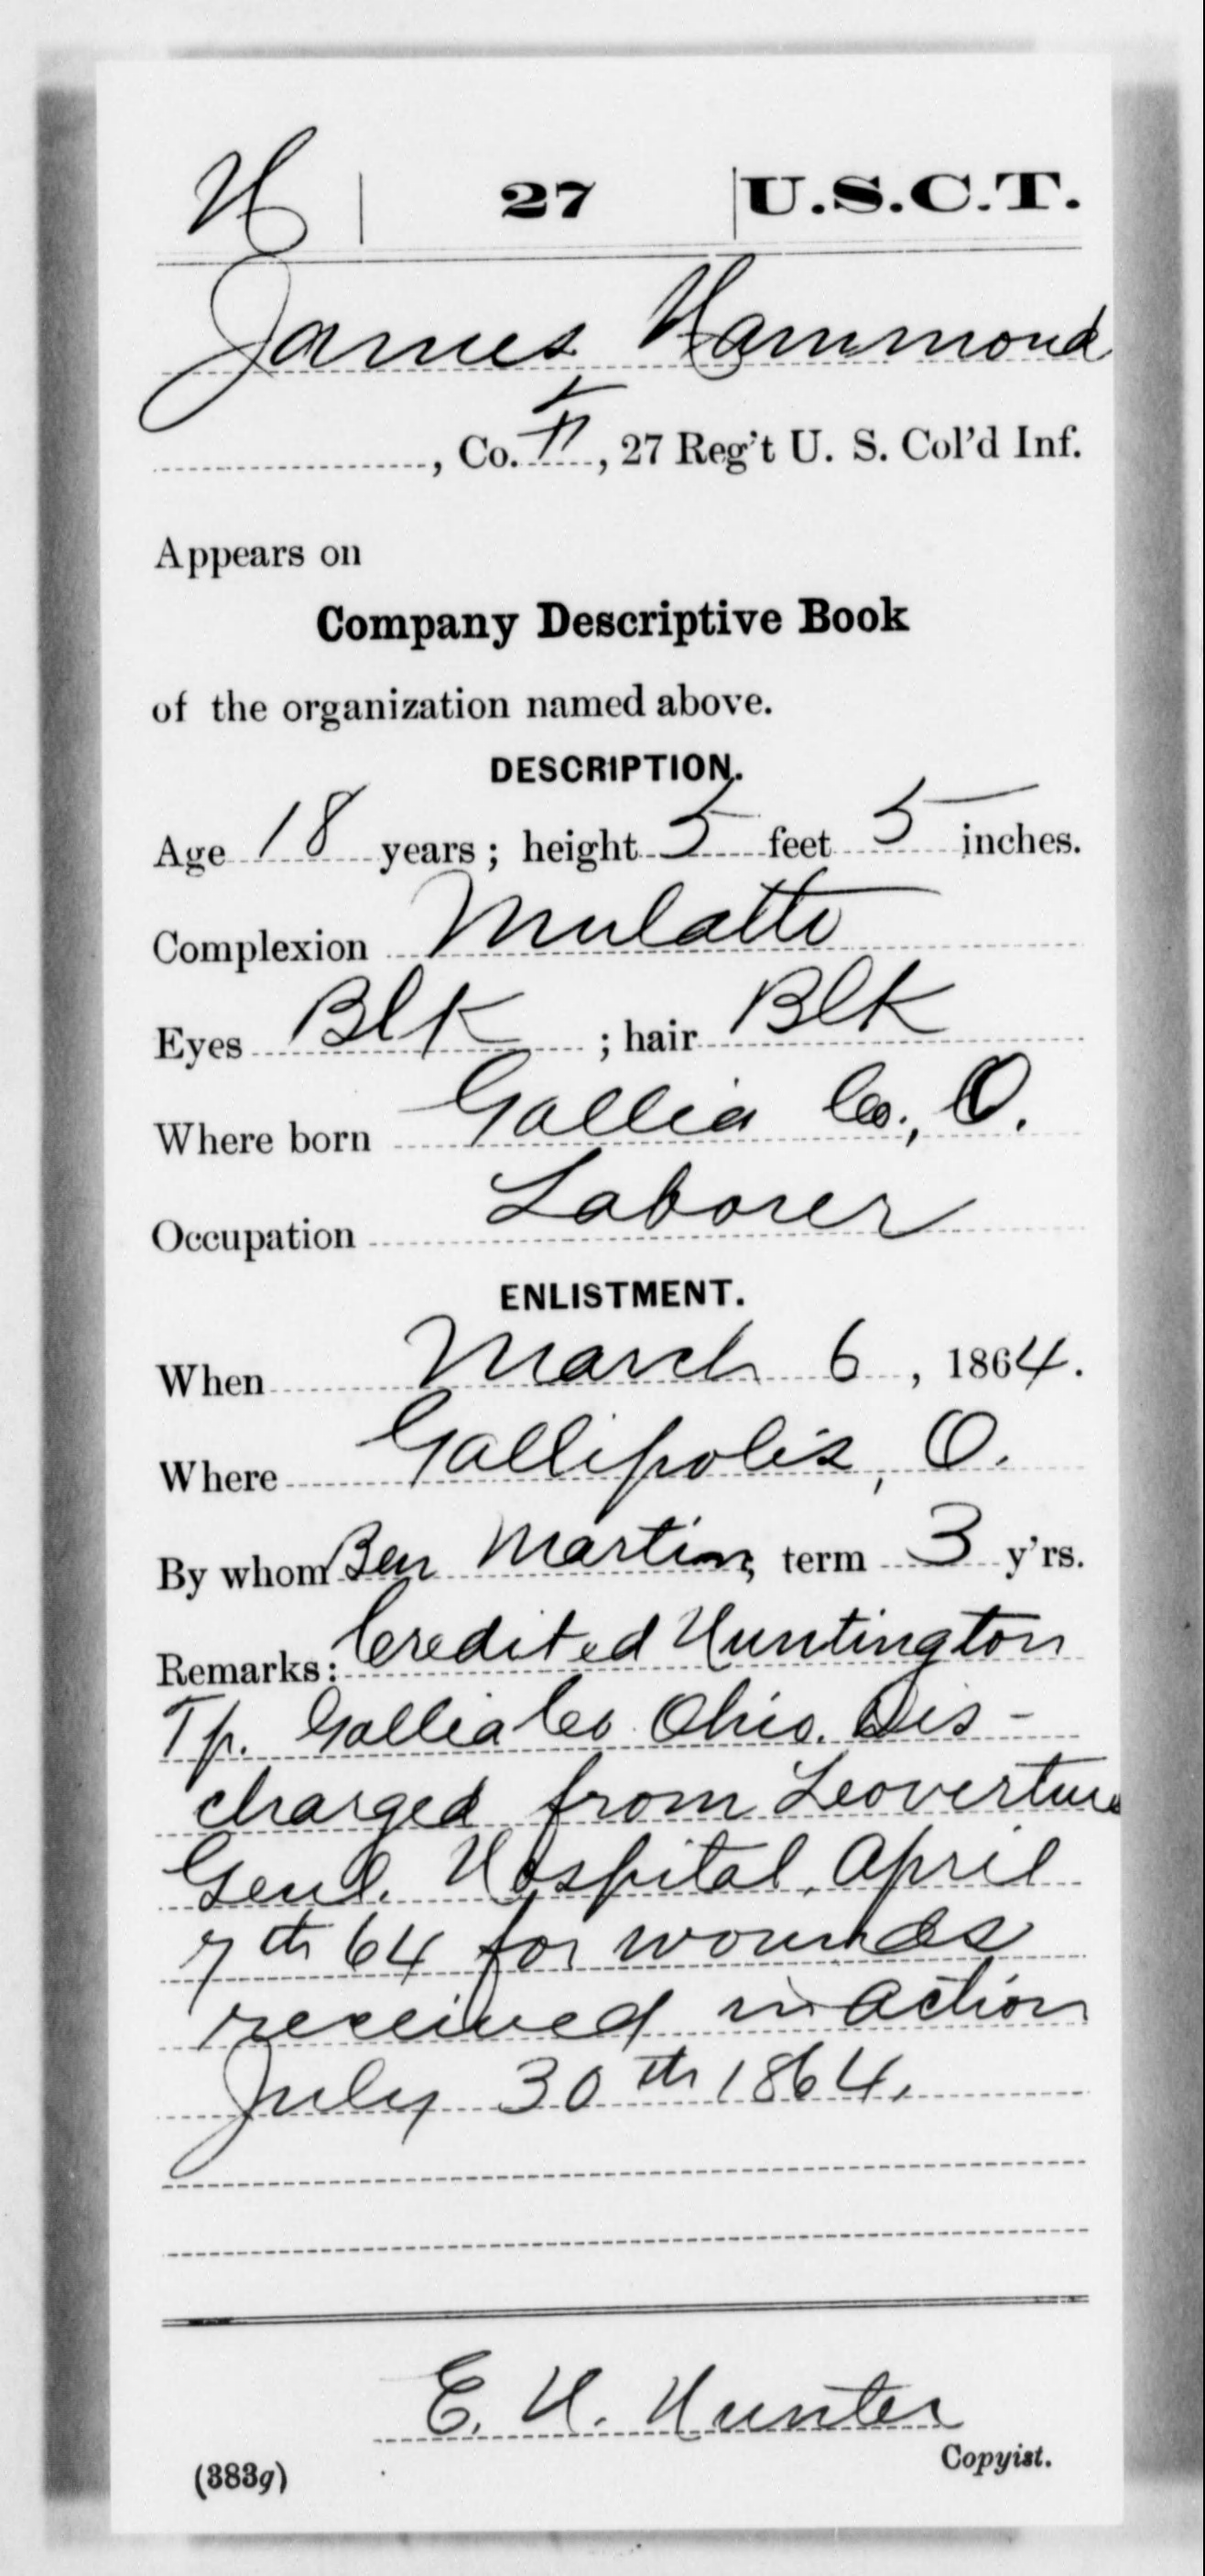 H | 27 | U.S.C.T.
James Hammond
, Co. F, 27 Reg't U. S. Col'd Inf.
Appears on
Company Descriptive Book
of the organization named above.
DESCRIPTION.
Age 18 years; height 5 feet 5 inches.
Complexion Mulatto
Eyes Blk ; hair Blk
Where born Gallia Co., O.
Occupation Laborer
ENLISTMENT.
When March 6, 1864.
Where Gallipolis, O.
By whom Ben Martin; term 3 y'rs.
Remarks: Credited Huntington
Tp. Gallia Co Ohio. Dis-
charged from Leoverture
Genl. Hospital, April
7th 64 for wounds
received in action
July 30th 1864.
E. H. Hunter
Copyist.
(383g)